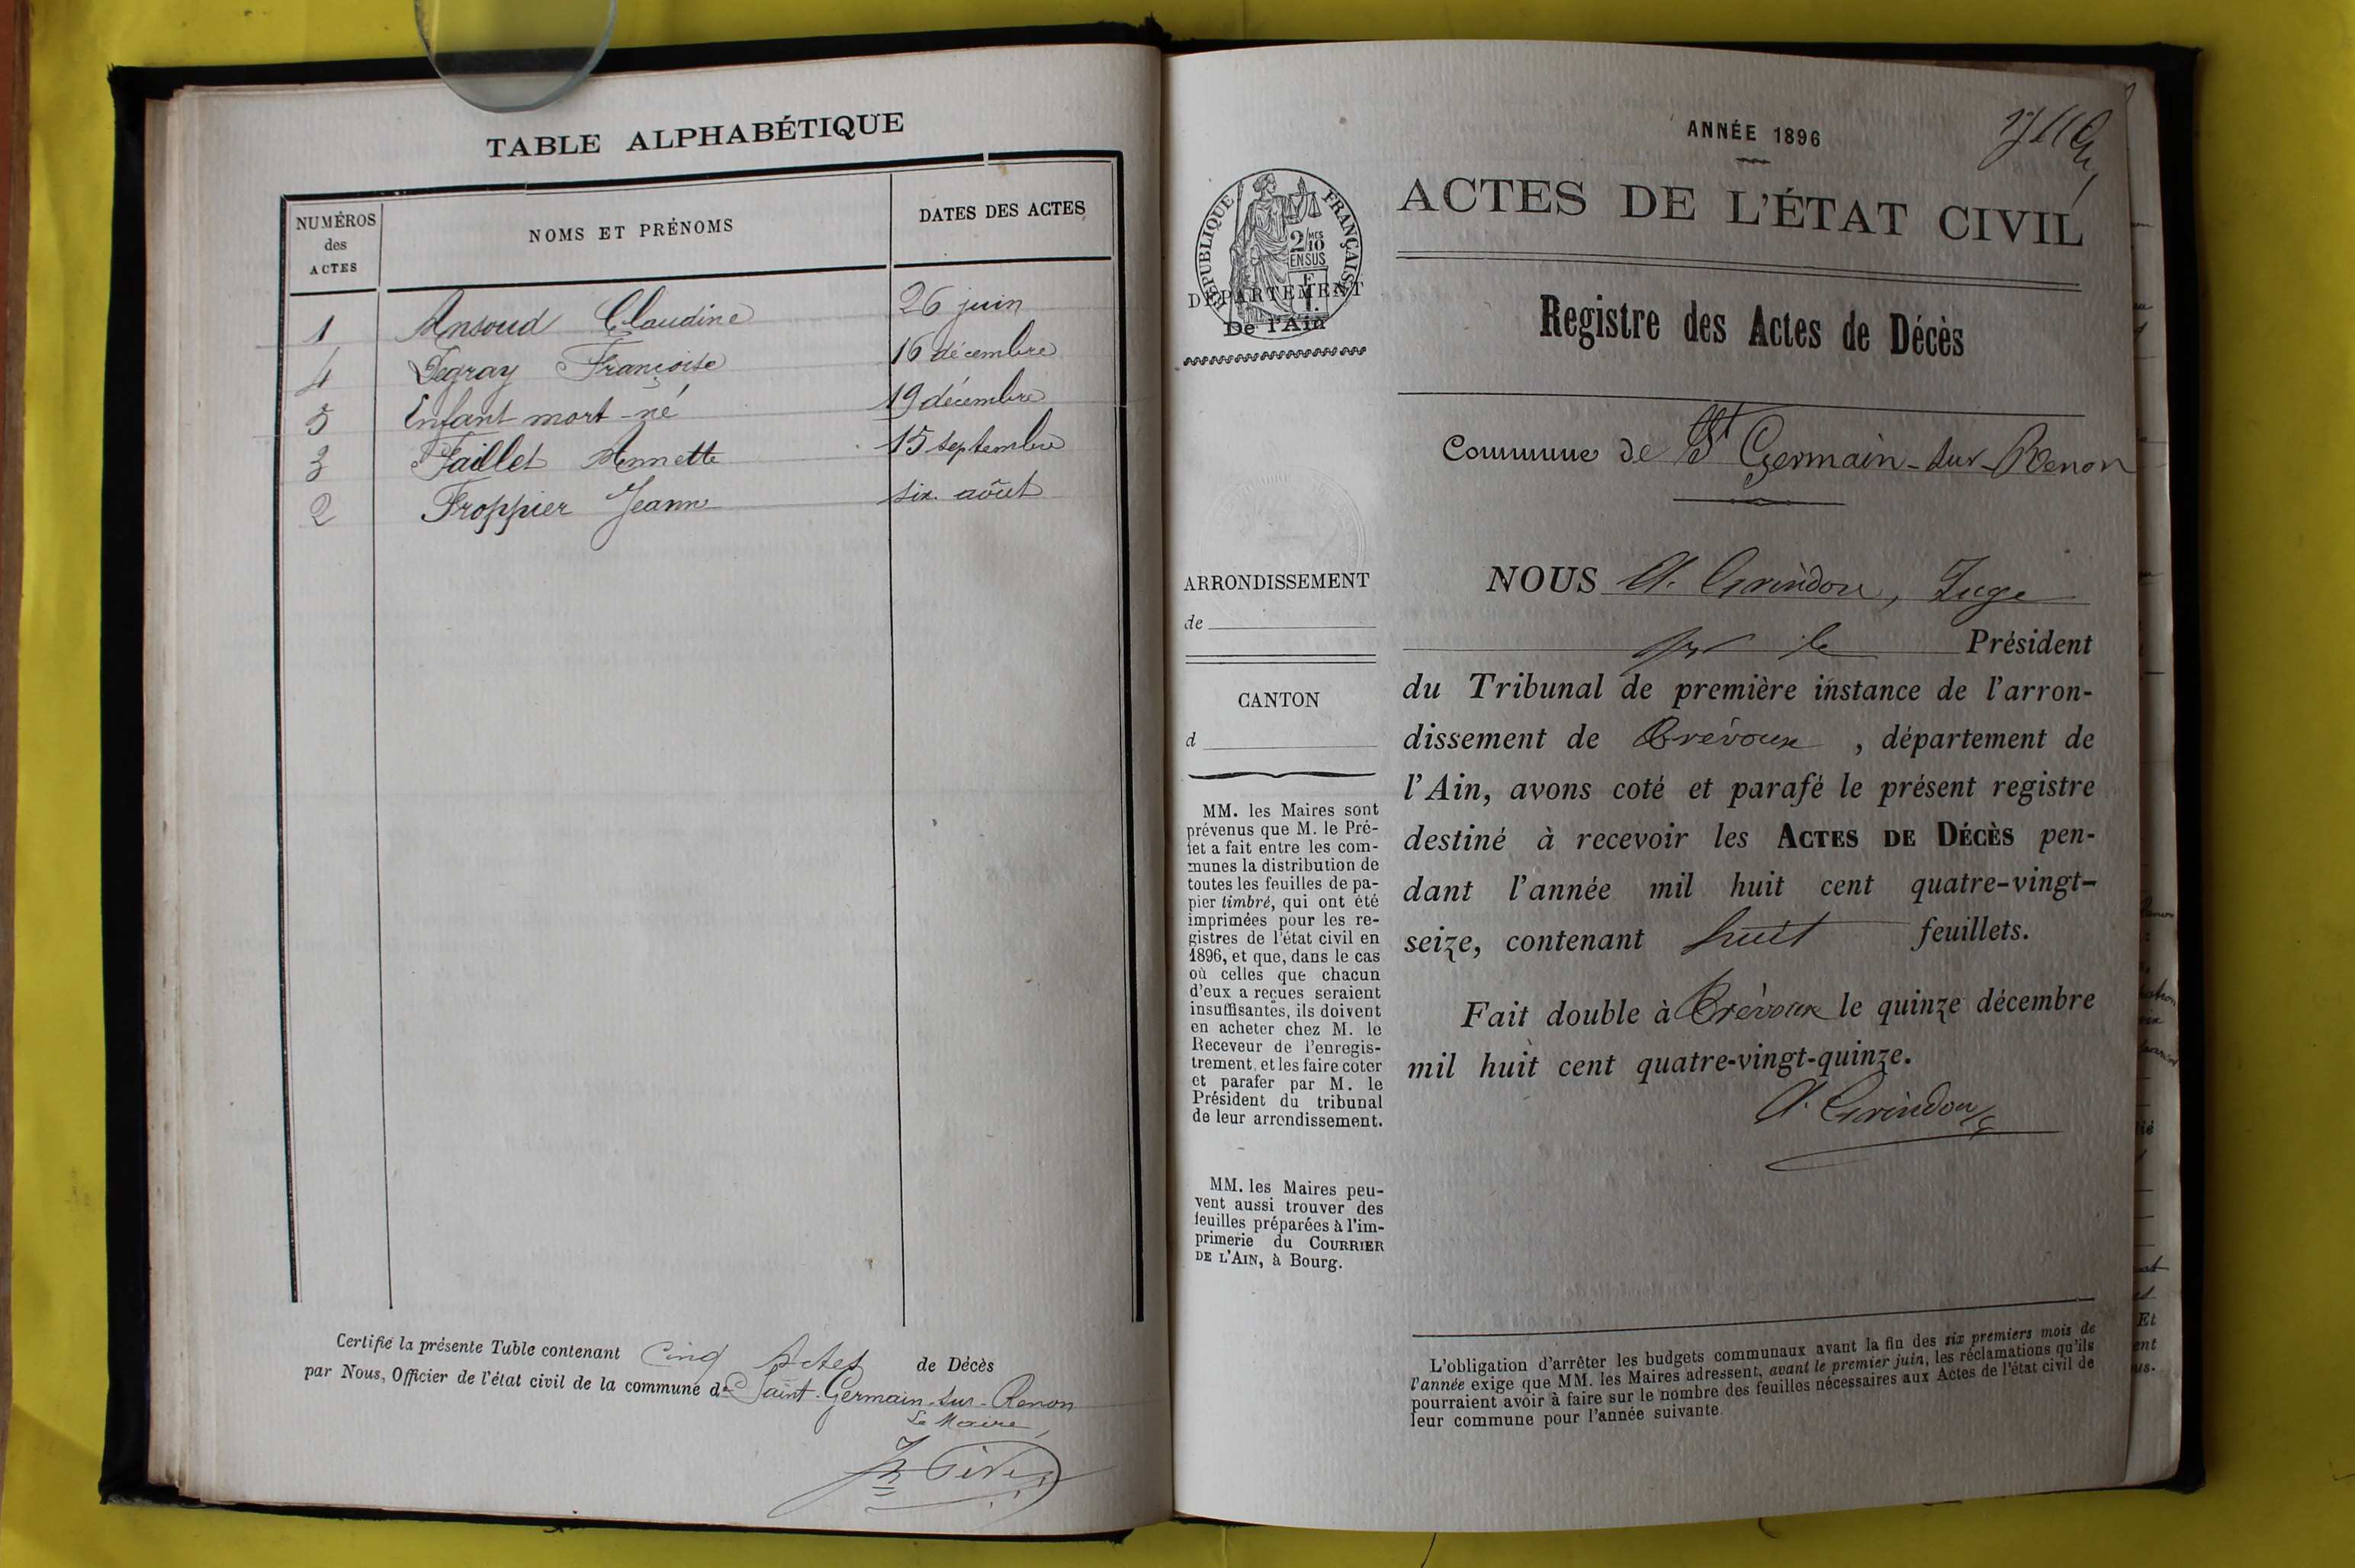 TABLE ALPHABÉTIQUE
NUMÉROS
des
ACTES
NOMS ET PRÉNOMS
DATES DES ACTES
1 Ansoud Claudine 26 juin
4 Degray Françoise 16 décembre
5 Enfant mort-né 19 décembre
3 Taillet Annette 15 septembre
2 Troppier Jeanne six août
Certifié la présente Table contenant Cinq Actes de Décès
par Nous, Officier de l'état civil de la commune de Saint-Germain-sur-Renon
Le Maire,
ANNÉE 1896
ACTES DE L'ÉTAT CIVIL
RÉPUBLIQUE FRANÇAISE
2/10 MES
EN SUS
DÉPARTEMENT
De l'Ain
Registre des Actes de Décès
Commune de St Germain-sur-Renon
ARRONDISSEMENT
de
CANTON
d
MM. les Maires sont
prévenus que M. le Pré-
fet a fait entre les com-
munes la distribution de
toutes les feuilles de pa-
pier timbré, qui ont été
imprimées pour les re-
gistres de l'état civil en
1896, et que, dans le cas
où celles que chacun
d'eux a reçues seraient
insuffisantes, ils doivent
en acheter chez M. le
Receveur de l'enregis-
trement, et les faire coter
et parafer par M. le
Président du tribunal
de leur arrondissement.
MM. les Maires peu-
vent aussi trouver des
feuilles préparées à l'im-
primerie du COURRIER
DE L'AIN, à Bourg.
NOUS A. Grindon, Juge
pr le Président
du Tribunal de première instance de l'arron-
dissement de Trévoux, département de
l'Ain, avons coté et parafé le présent registre
destiné à recevoir les ACTES DE DÉCÈS pen-
dant l'année mil huit cent quatre-vingt-
seize, contenant huit feuillets.
Fait double à Trévoux le quinze décembre
mil huit cent quatre-vingt-quinze.
A. Grindon
L'obligation d'arrêter les budgets communaux avant la fin des six premiers mois de
l'année exige que MM. les Maires adressent, avant le premier juin, les réclamations qu'ils
pourraient avoir à faire sur le nombre des feuilles nécessaires aux Actes de l'état civil de
leur commune pour l'année suivante.